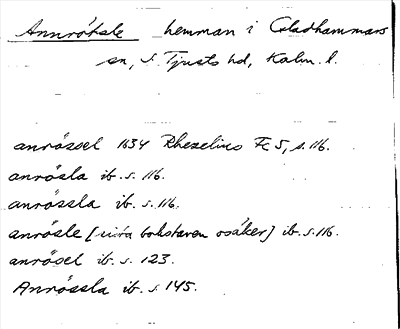 Annrötsle hemman i Gladhammars
sn, S. Tjusts hd, Kalm. l.
anrössel 1634 Rhezelius Fc 5, s. 116.
anrösla ib. s. 116.
anrössla ib. s. 116.
anrösle [sista bokstaven osäker] ib. s. 116.
anrösel ib. s. 123.
Anrössla ib. s. 145.